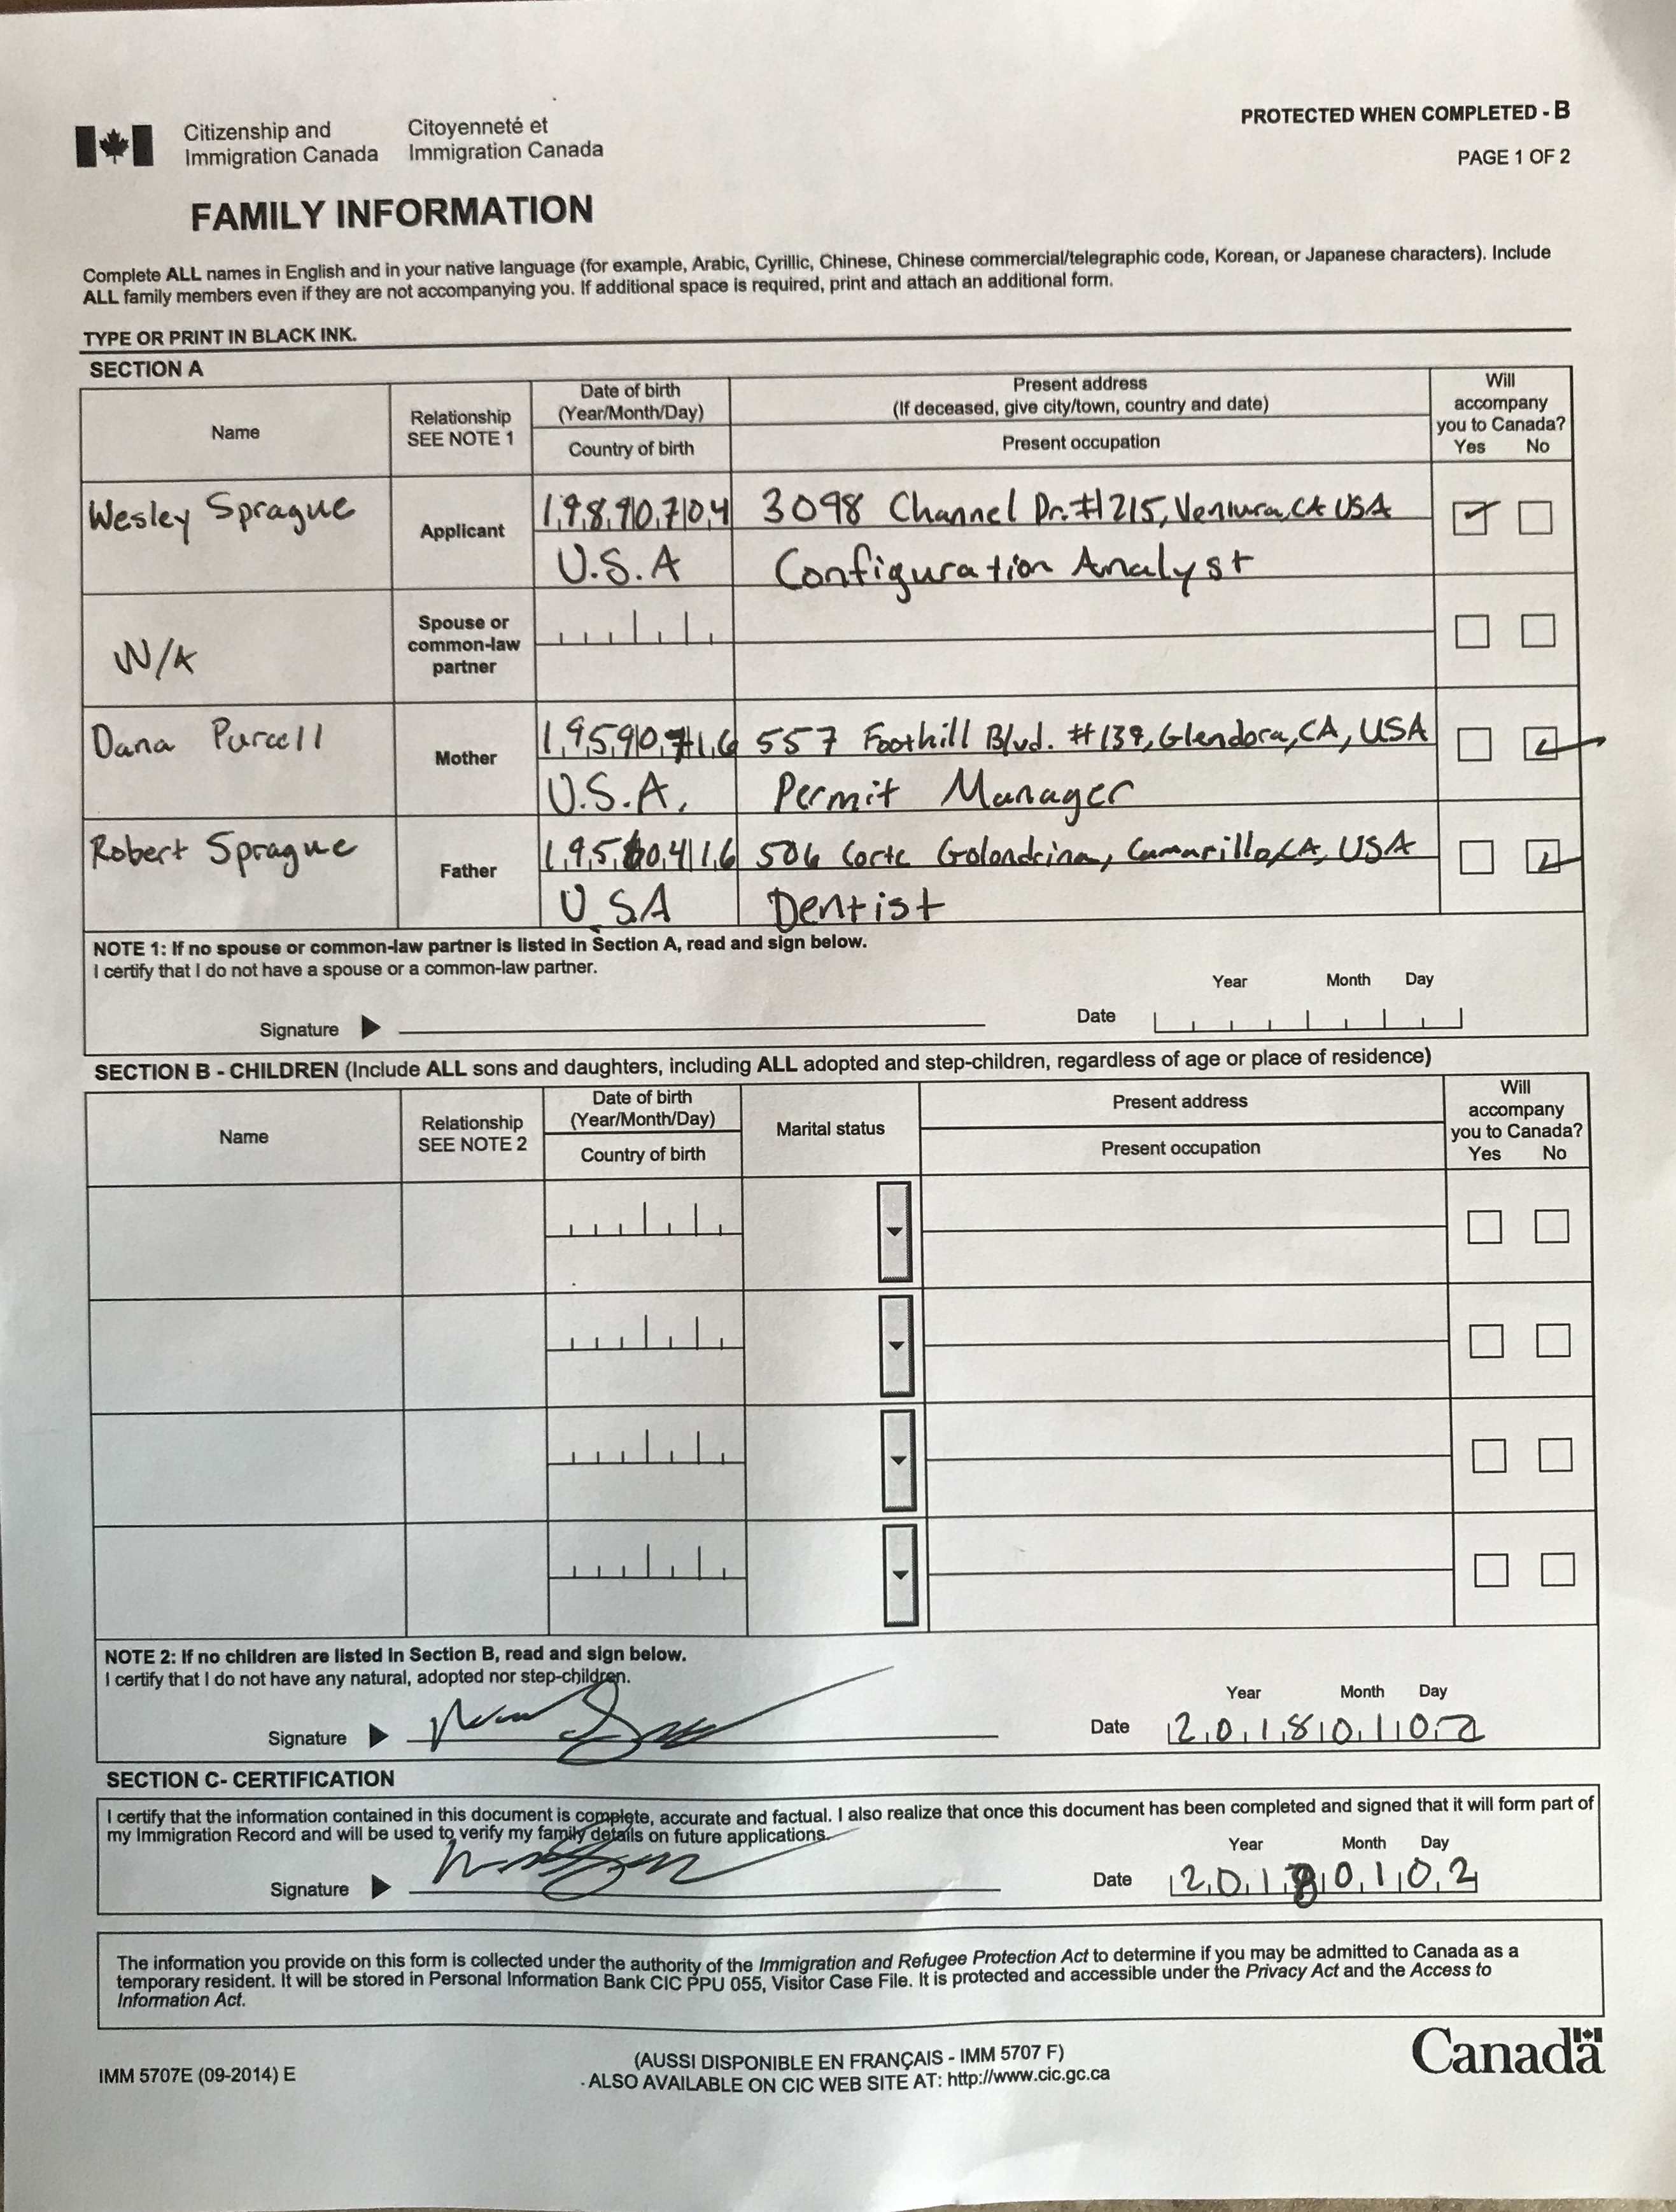 Citizenship and Immigration Canada
Citoyenneté et Immigration Canada
PROTECTED WHEN COMPLETED - B
PAGE 1 OF 2
FAMILY INFORMATION
Complete ALL names in English and in your native language (for example, Arabic, Cyrillic, Chinese, Chinese commercial/telegraphic code, Korean, or Japanese characters). Include
ALL family members even if they are not accompanying you. If additional space is required, print and attach an additional form.
TYPE OR PRINT IN BLACK INK.
SECTION A
Name
Relationship SEE NOTE 1
Date of birth (Year/Month/Day)
Country of birth
Present address
(If deceased, give city/town, country and date)
Present occupation
Will accompany you to Canada?
Yes No
Wesley Sprague
Applicant
19890704
3098 Channel Dr. #215, Ventura, CA USA
U.S.A
Configuration Analyst
N/A
Spouse or common-law partner
Dana Purcell
Mother
19590716
557 Foothill Blvd. #139, Glendora, CA, USA
U.S.A.
Permit Manager
Robert Sprague
Father
506 Corte Golondrina, Camarillo, CA, USA
U SA
Dentist
NOTE 1: If no spouse or common-law partner is listed in Section A, read and sign below.
I certify that I do not have a spouse or a common-law partner.
Year Month Day
Signature
Date
SECTION B - CHILDREN (Include ALL sons and daughters, including ALL adopted and step-children, regardless of age or place of residence)
Name
Relationship SEE NOTE 2
Date of birth (Year/Month/Day)
Country of birth
Marital status
Present address
Present occupation
Will accompany you to Canada?
Yes No
NOTE 2: If no children are listed in Section B, read and sign below.
I certify that I do not have any natural, adopted nor step-children.
Year Month Day
Signature
Date 20180102
SECTION C- CERTIFICATION
I certify that the information contained in this document is complete, accurate and factual. I also realize that once this document has been completed and signed that it will form part of
my Immigration Record and will be used to verify my family details on future applications.
Year Month Day
Signature
Date 20180102
The information you provide on this form is collected under the authority of the Immigration and Refugee Protection Act to determine if you may be admitted to Canada as a
temporary resident. It will be stored in Personal Information Bank CIC PPU 055, Visitor Case File. It is protected and accessible under the Privacy Act and the Access to
Information Act.
IMM 5707E (09-2014) E
(AUSSI DISPONIBLE EN FRANÇAIS - IMM 5707 F)
ALSO AVAILABLE ON CIC WEB SITE AT: http://www.cic.gc.ca
Canada